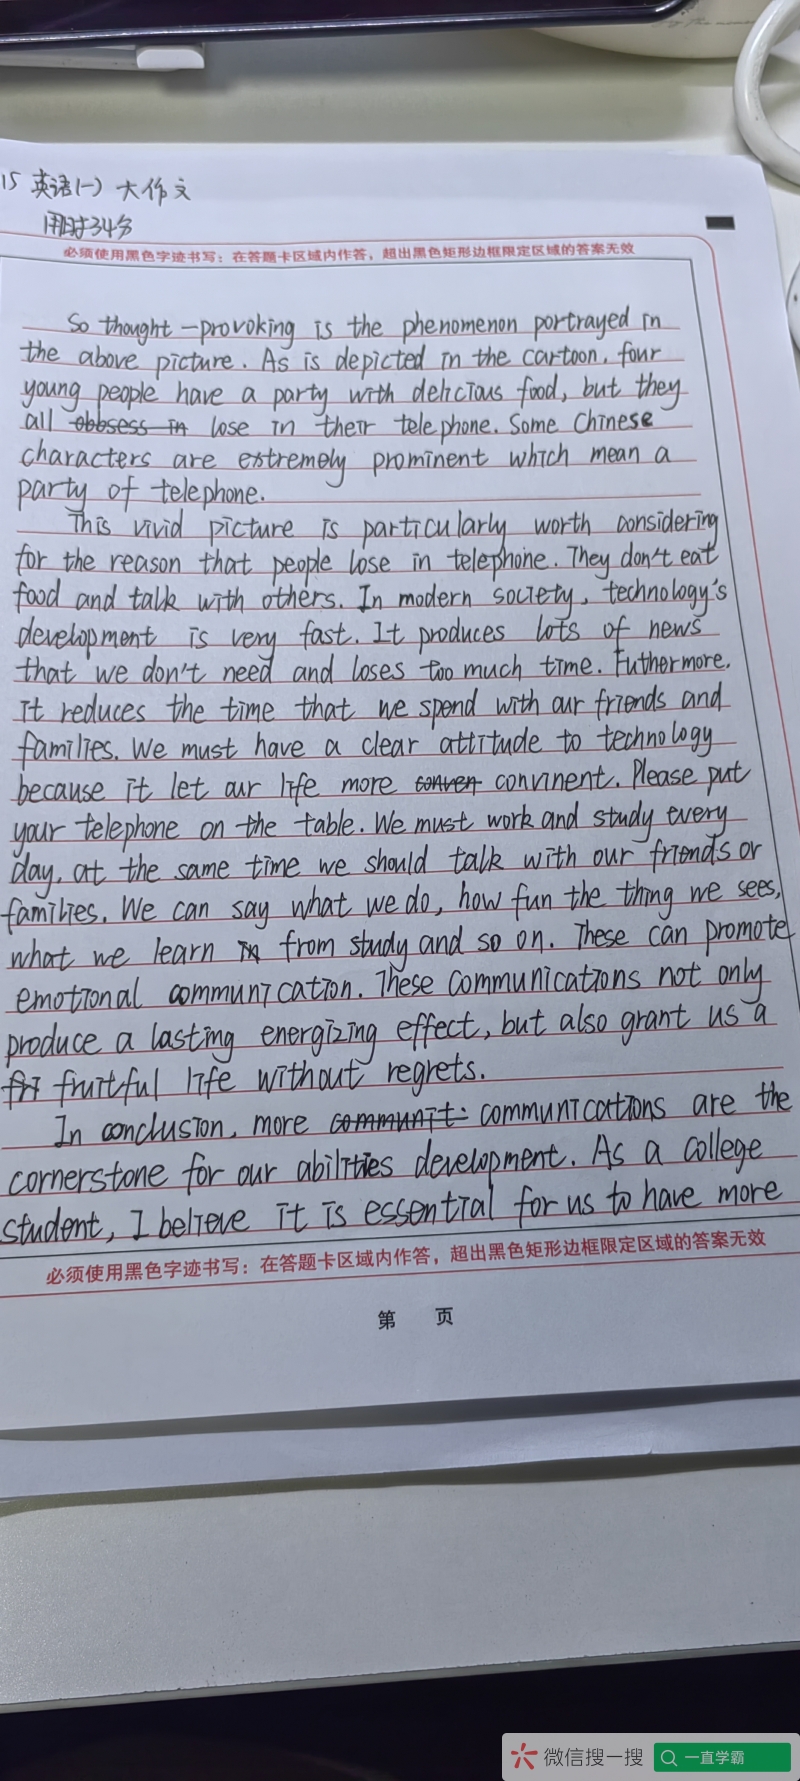 15 英语(一) 大作文
用时34分
必须使用黑色字迹书写：在答题卡区域内作答，超出黑色矩形边框限定区域的答案无效
So thought-provoking is the phenomenon portrayed in
the above picture. As is depicted in the cartoon, four
young people have a party with delicious food, but they
all obbsess in lose in their telephone. Some Chinese
characters are extremely prominent which mean a
party of telephone.
This vivid picture is particularly worth considering
for the reason that people lose in telephone. They don't eat
food and talk with others. In modern society, technology's
development is very fast. It produces lots of news
that we don't need and loses too much time. Futhermore,
it reduces the time that we spend with our friends and
families. We must have a clear attitude to technology
because it let our life more conven convinent. Please put
your telephone on the table. We must work and study every
day, at the same time we should talk with our friends or
families. We can say what we do, how fun the thing we sees,
what we learn in from study and so on. These can promote
emotional communication. These communications not only
produce a lasting energizing effect, but also grant us a
fri fruitful life without regrets.
In conclusion, more communit communications are the
cornerstone for our abilities development. As a college
student, I believe it is essential for us to have more
必须使用黑色字迹书写：在答题卡区域内作答，超出黑色矩形边框限定区域的答案无效
第 页
微信搜一搜 一直学霸